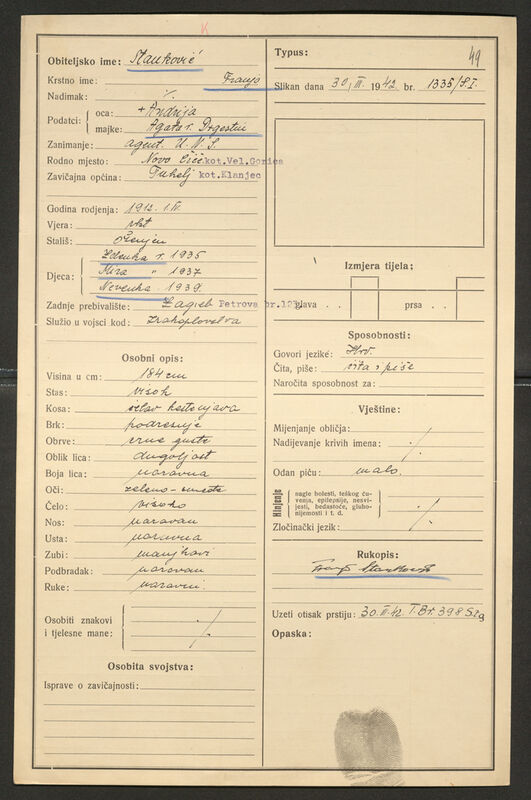 K
Obiteljsko ime: Stanković
Krstno ime: Franjo
Nadimak: /.
Podatci: oca: + Andrija
majke: Agata r. Drgestin
Zanimanje: agent. U.N.S.
Rodno mjesto: Novo Čiče kot.Vel.Gorica
Zavičajna općina: Tuhelj kot.Klanjec
Godina rodjenja: 1912. 1. IV.
Vjera: rkt
Stališ: oženjen
Djeca: Zdenka r. 1935
Mira " 1937
Nevenka 1939.
Zadnje prebivalište: Zagreb Petrova br.123
Služio u vojsci kod: zrakoplovstva
Osobni opis:
Visina u cm: 184 cm
Stas: visok
Kosa: ćelav kestenjava
Brk: podrezuje
Obrve: crne guste
Oblik lica: dugoljast
Boja lica: naravna
Oči: zeleno-smeđe
Čelo: visoko
Nos: naravan
Usta: naravna
Zubi: manjkavi
Podbradak: naravan
Ruke: naravni
Osobiti znakovi
i tjelesne mane: /.
Osobita svojstva:
Isprave o zavičajnosti:
49
Typus:
Slikan dana 30. III. 1942 br. 1335/S.I.
Izmjera tijela:
glava prsa
Sposobnosti:
Govori jeziké: Hrv.
Čita, piše: čita i piše
Naročita sposobnost za:
Vještine:
Mijenjanje obličja:
Nadijevanje krivih imena: /.
Odan piću: malo
Kinjenje nagle bolesti, teškog ču-
venja, epilepsije, nesvi-
jesti, bedastoće, gluho-
nijemosti i t. d. /.
Zločinački jezik:
Rukopis:
Franjo Stanković
Uzeti otisak prstiju: 30. III. 42. T.Br. 398 Szg
Opaska: